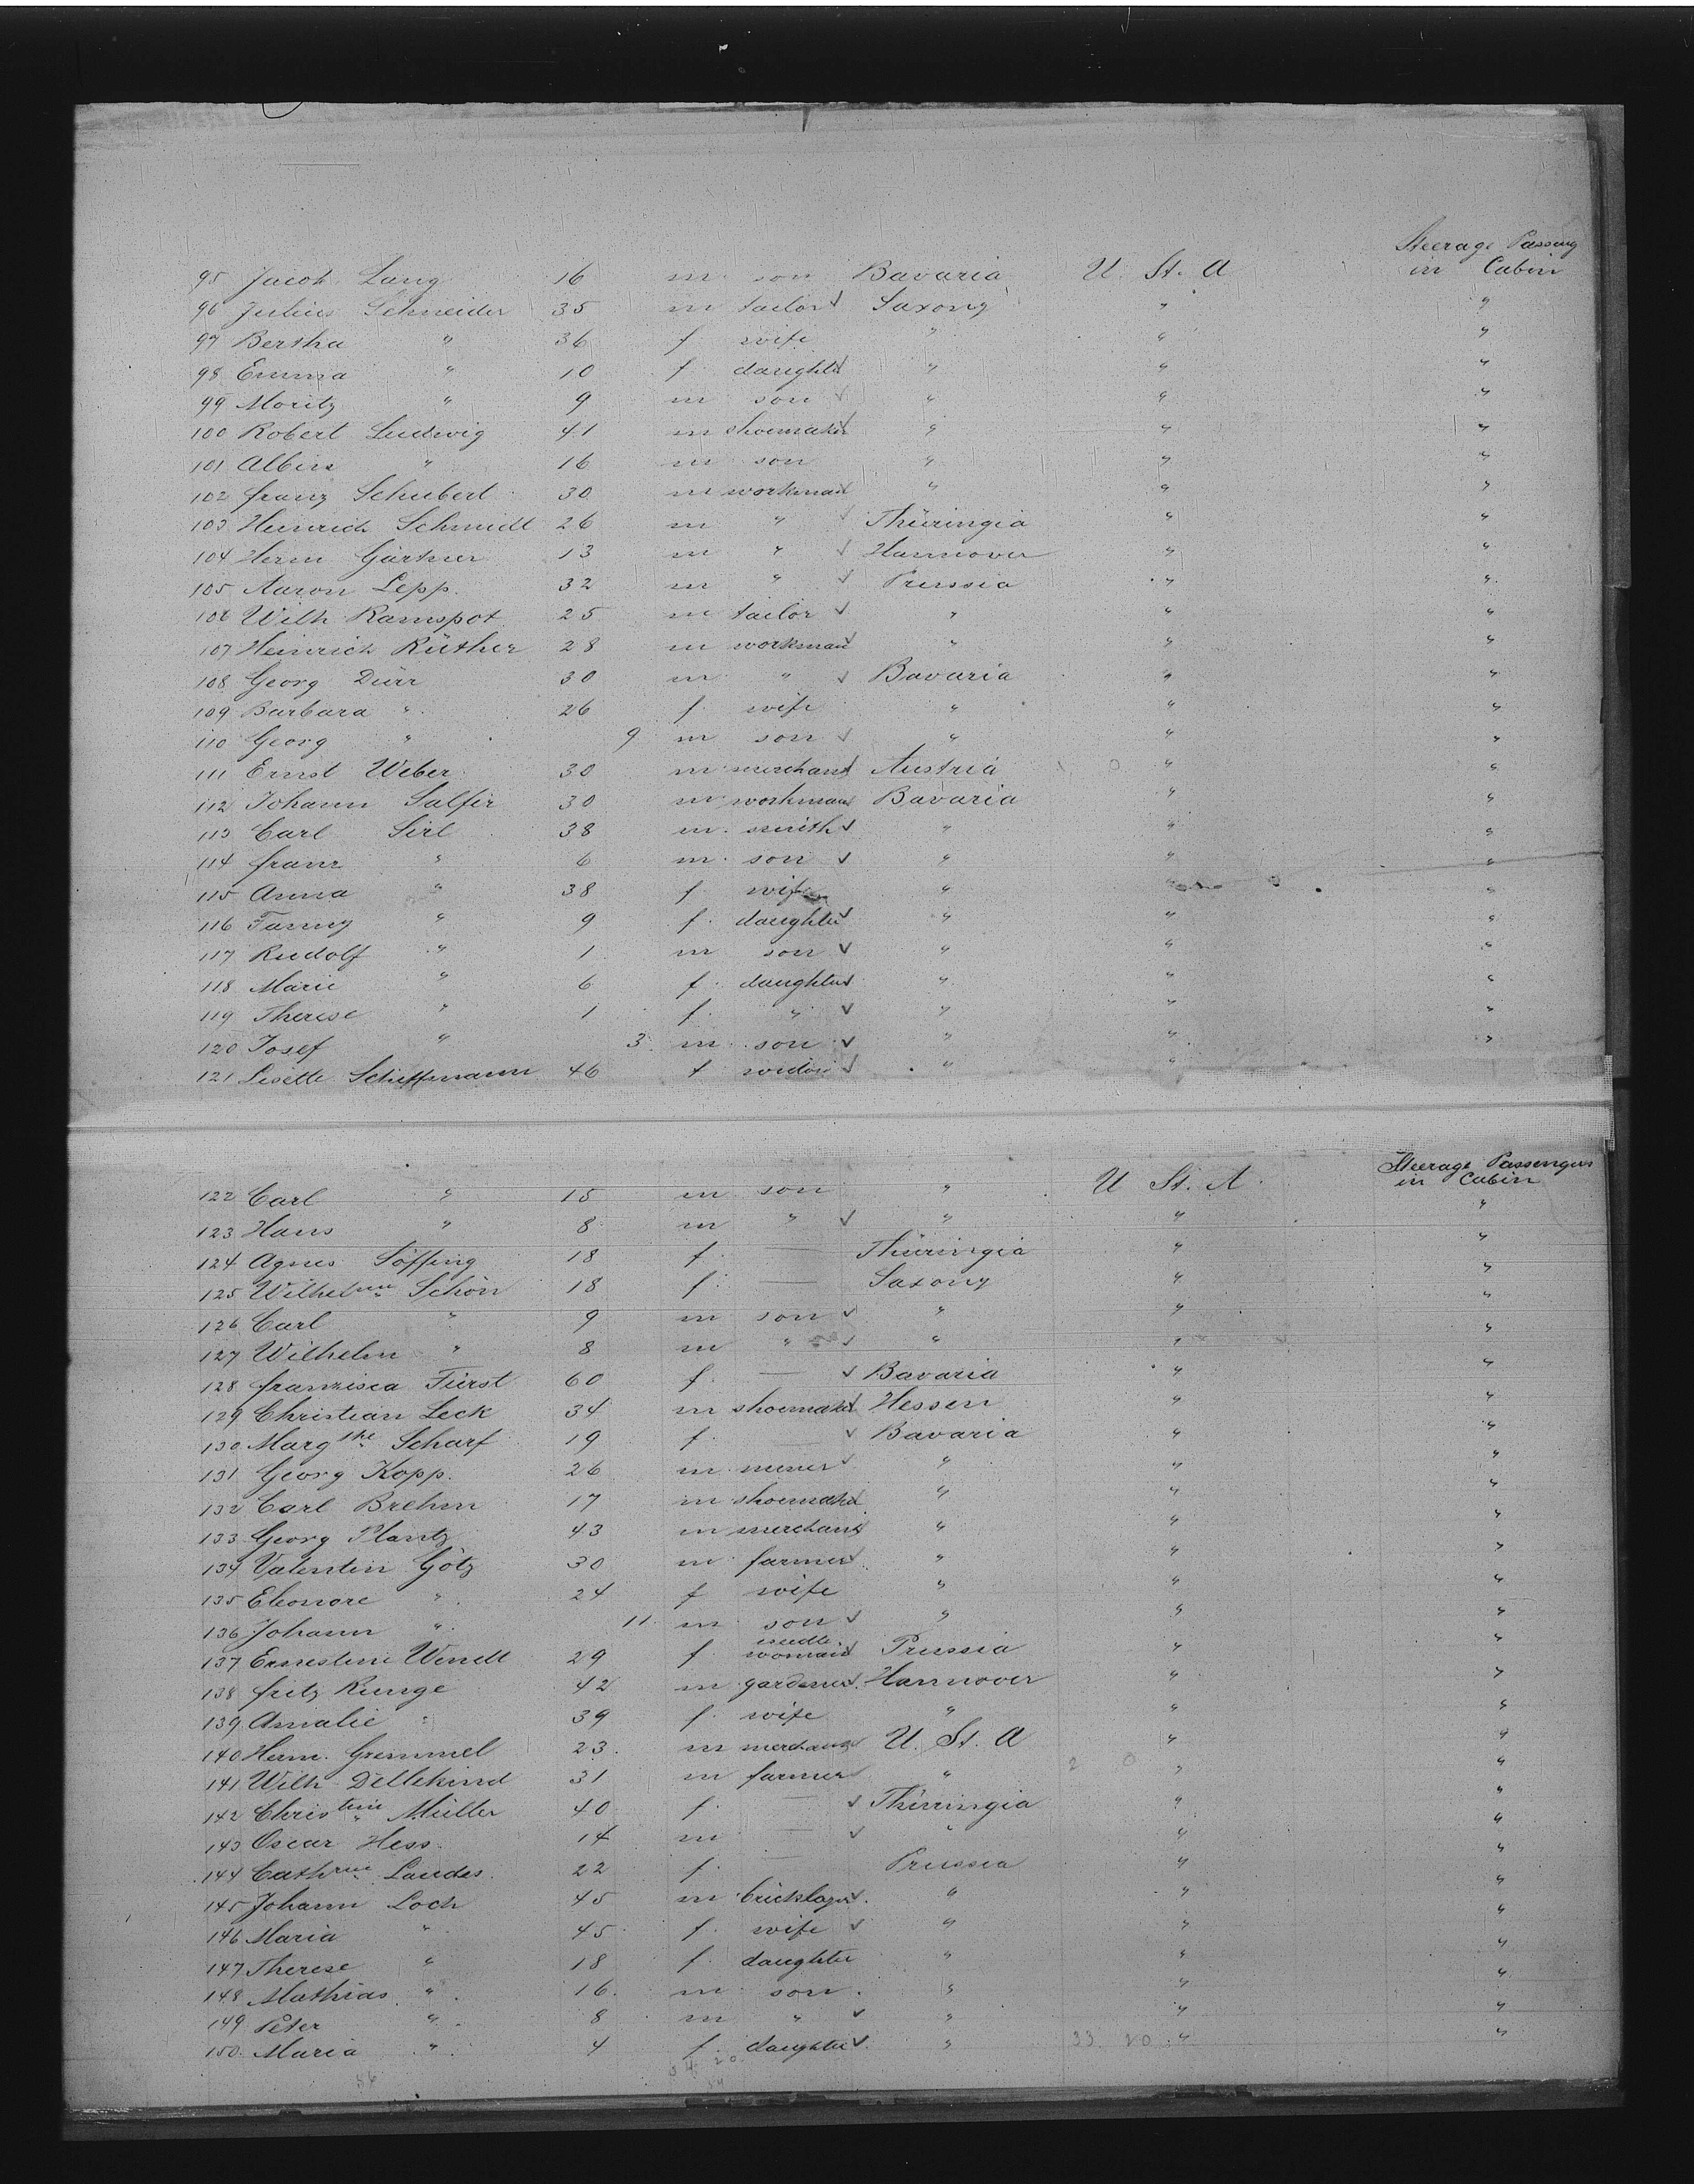 Steerage Passeng
95 Jacob Lang 16 m son Bavaria U. St. A in Cabin
96 Julius Schneider 35 m tailor Saxony " "
97 Bertha " 36 f wife " " "
98 Emma " 10 f daughter " " "
99 Moritz " 9 m son " " "
100 Robert Ludwig 41 m shoemaker " " "
101 Albin " 16 m son " " "
102 Franz Schubert 30 m workman " " "
103 Heinrich Schmidt 26 m " Thüringia " "
104 Herm Gärtner 13 m " Hannover " "
105 Aaron Lepp. 32 m " Prussia " "
106 Wilh Ramspot 25 m tailor " " "
107 Heinrich Rüther 28 m workman " " "
108 Georg Dürr 30 m " Bavaria " "
109 Barbara " 26 f. wife " " "
110 Georg " 9 m son " " "
111 Ernst Weber 30 m merchant Austria 0 " "
112 Johann Salfer 30 m workman Bavaria " "
113 Carl Sirl 38 m. smith " " "
114 Franz " 6 m. son " " "
115 Anna " 38 f. wife " " "
116 Fanny " 9 f. daughter " " "
117 Rudolf " 1 m son " " "
118 Marie " 6 f. daughter " " "
119 Therese " 1 f. " " " "
120 Josef " 3 m son " " "
121 Lisette Scheffmann 46 f widow " "
Steerage Passengers
122 Carl " 15 m son " U St. A. in Cabin
123 Hans " 8 m " " " "
124 Agnes Töffing 18 f. — Thüringia " "
125 Wilhelme Schön 18 f. — Saxony " "
126 Carl " 9 m son " " "
127 Wilhelm " 8 m " " " "
128 Franzisca Fürst 60 f. — Bavaria " "
129 Christian Leck 34 m shoemaker Hessen " "
130 Margthe Scharf 19 f. — Bavaria " "
131 Georg Kopp. 26 m " "
132 Carl Brehm 17 m shoemaker " " "
133 Georg Plantz 43 m merchant " " "
134 Valentin Götz 30 m farmer " " "
135 Eleonore " 24 f wife " " "
136 Johann " 11 m son " " "
137 Ernestine Wendt 29 f needle woman Prussia " "
138 Fritz Runge 42 m gardener Hannover " "
139 Amalie " 39 f. wife " " "
140 Herm. Gremmel 23. m merchant U. St. A " "
141 Wilh Dellekind 31 m farmer " 2 0 " "
142 Christine Müller 40 f. — Thüringia " "
143 Oscar Hess. 14 m — " " "
144 Cathrine Landes. 22 f. — Prussia " "
145 Johann Loch 45 m bricklayer " " "
146 Maria " 45 f. wife " " "
147 Therese " 18 f. daughter " " "
148 Mathias " 16. m son. " " "
149 Peter " 8 m " " " "
150. Maria " 4 f. daughter " 33 20 " "